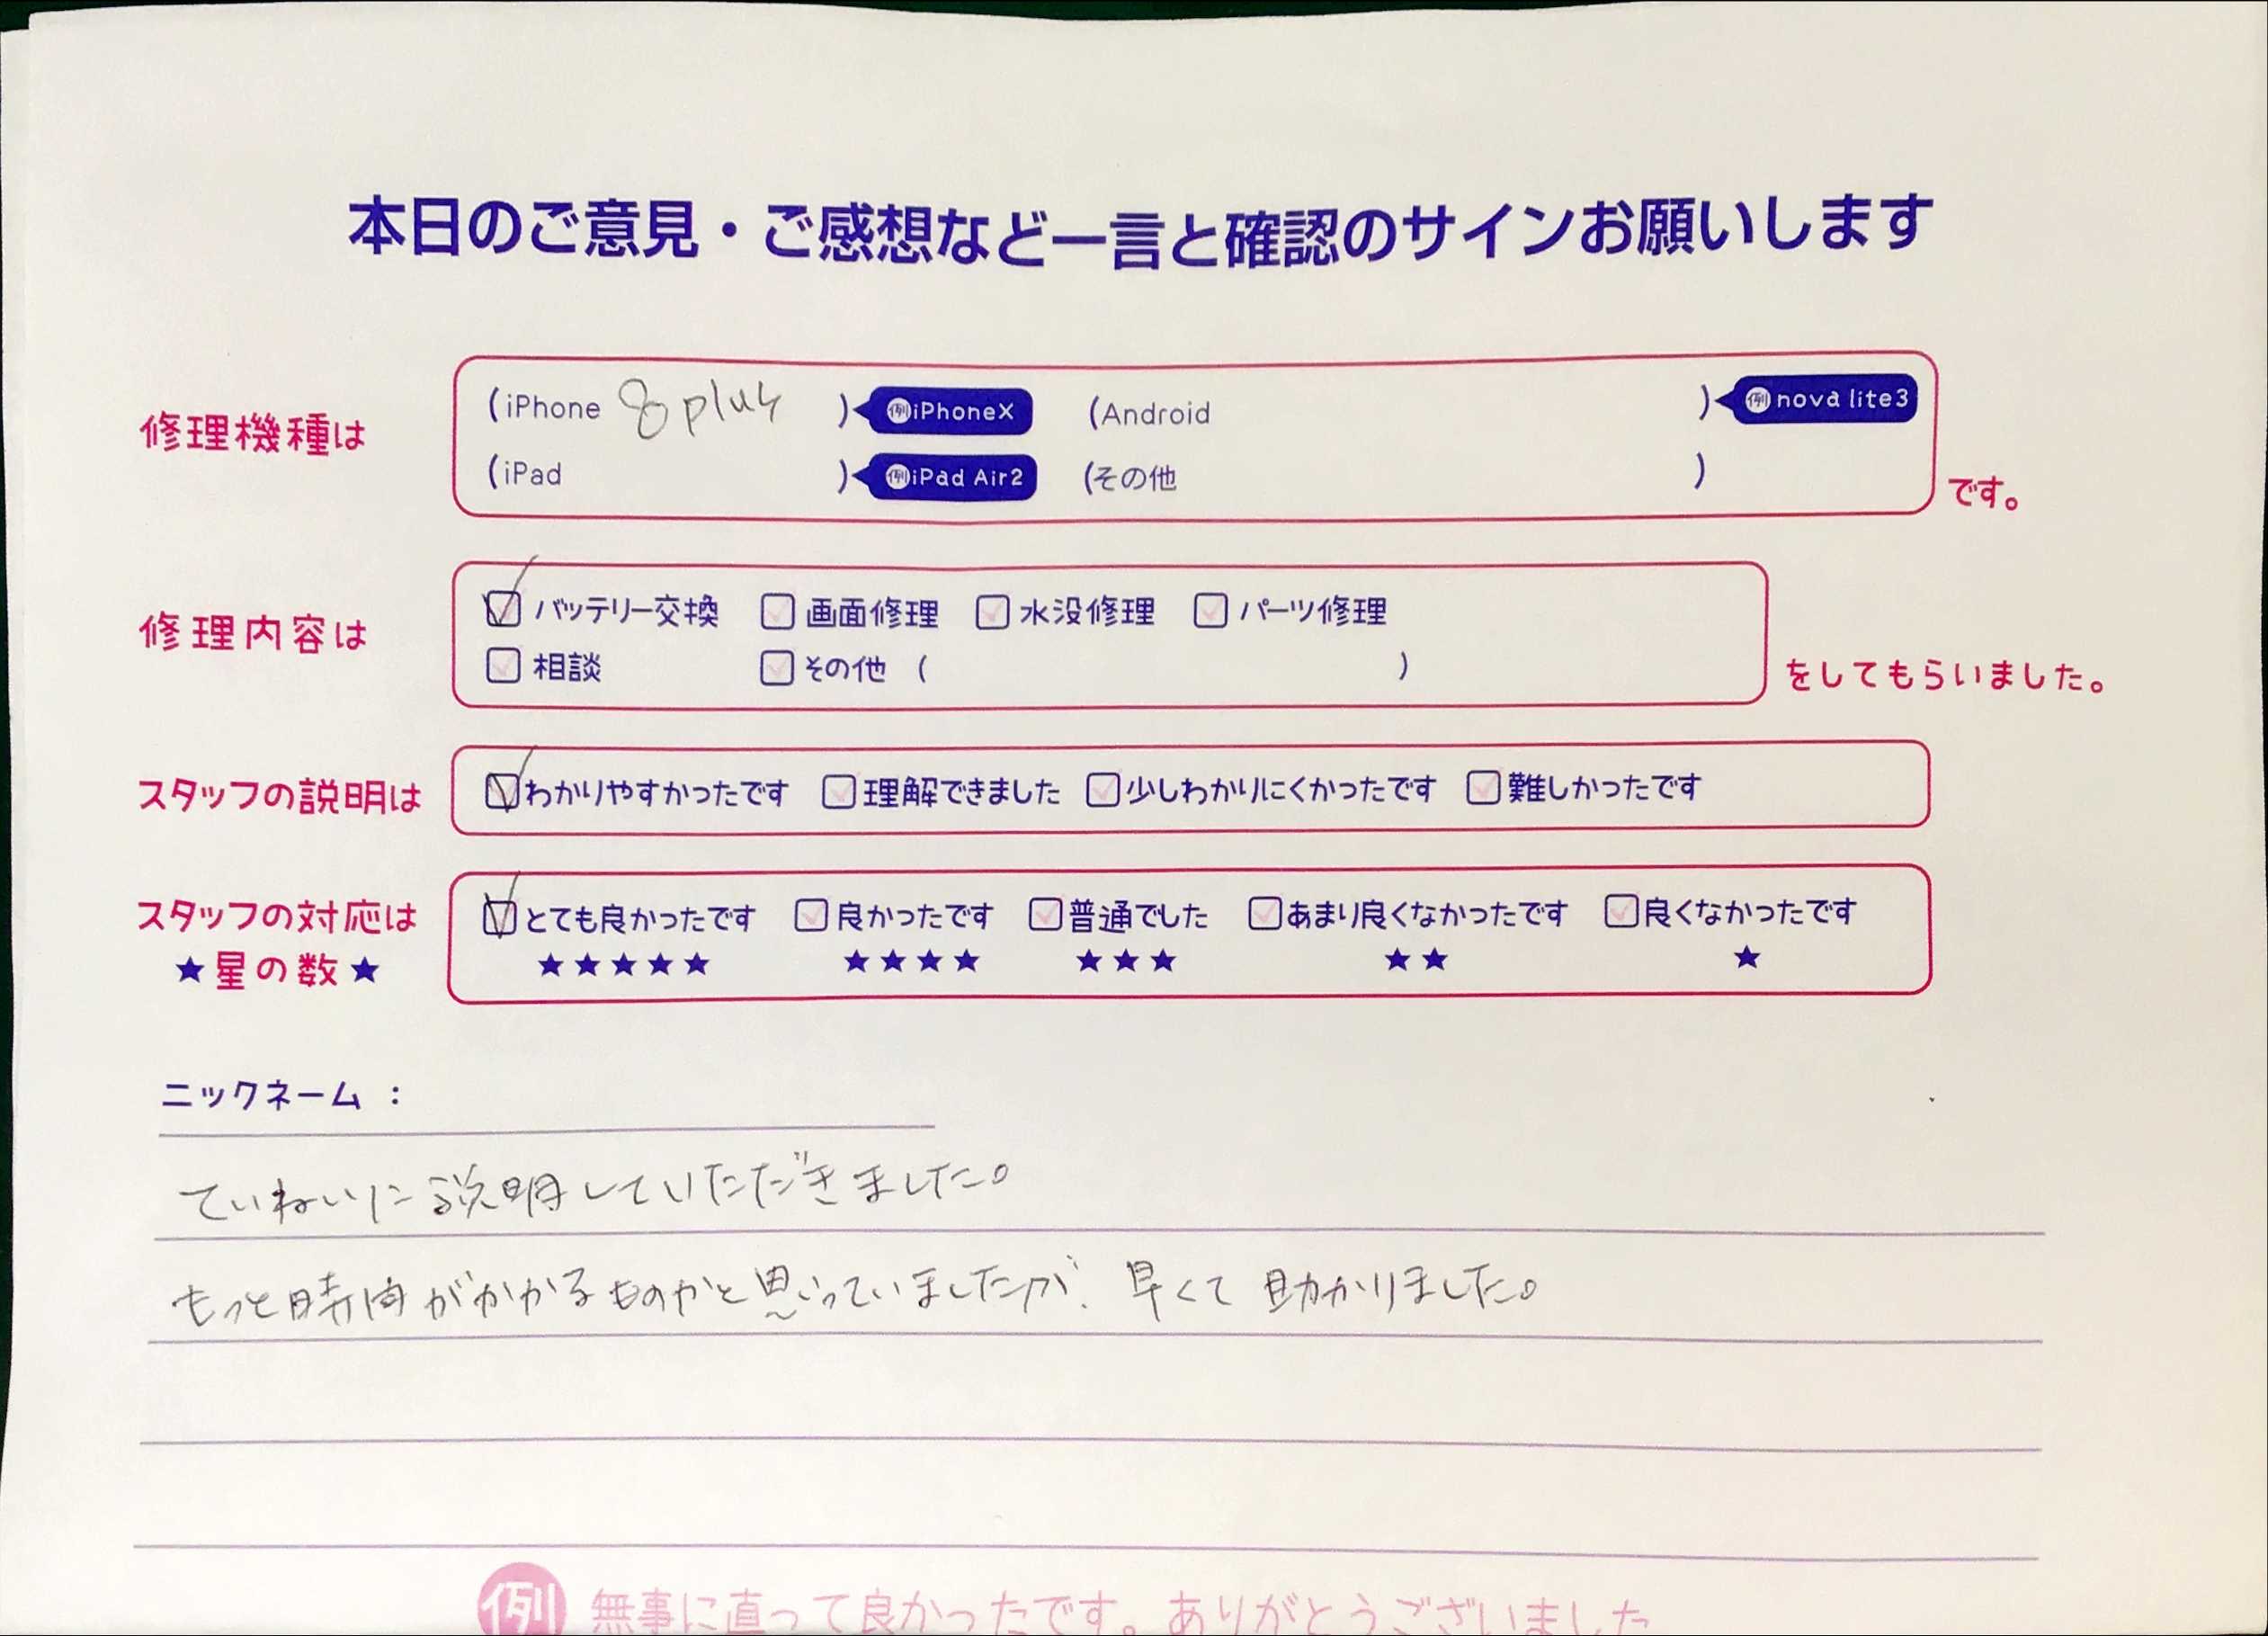 本日のご意見・ご感想など一言と確認のサインお願いします
修理機種は
(iPhone 8 plus ) 例iPhoneX (Android ) 例nova lite3
(iPad ) 例iPad Air2 (その他 )
です。
修理内容は
バッテリー交換 画面修理 水没修理 パーツ修理
相談 その他 ( )
をしてもらいました。
スタッフの説明は わかりやすかったです 理解できました 少しわかりにくかったです 難しかったです
スタッフの対応は とても良かったです 良かったです 普通でした あまり良くなかったです 良くなかったです
★星の数★ ★★★★★ ★★★★ ★★★ ★★ ★
ニックネーム :
ていねいに説明していただきました。
もっと時間がかかるものかと思っていましたが、早くて助かりました。
例 無事に直って良かったです。ありがとうございました